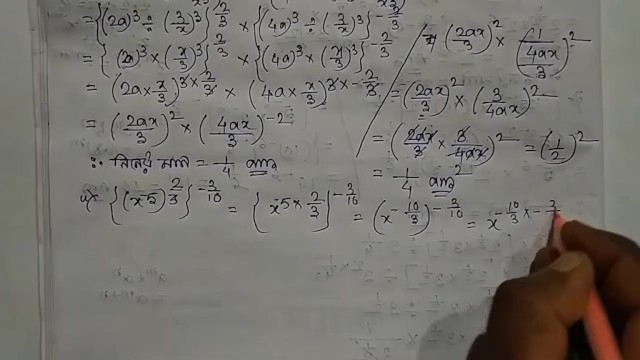 ={(2a)³ ÷ (3/x)³}^(2/3) × {(4a)³ ÷ (3/x)³}^(-2/3)
={(2a)³ × (x/3)³}^(2/3) × {(4a)³ × (x/3)³}^(-2/3)
= (2a × x/3)^(3 × 2/3) × (4a × x/3)^(3 × -2/3)
= (2ax/3)² × (4ax/3)^(-2)
∴ নির্ণেয় মান = 1/4 ans
(2ax/3)² × (1/(4ax/3))²
= (2ax/3)² × (3/4ax)²
= (2ax/3 × 3/4ax)² = (1/2)²
= 1/4 ans
{(x^-5)^(2/3)}^(-3/10) = {x^(-5 × 2/3)}^(-3/10) = (x^(-10/3))^(-3/10) = x^(-10/3 × -3/